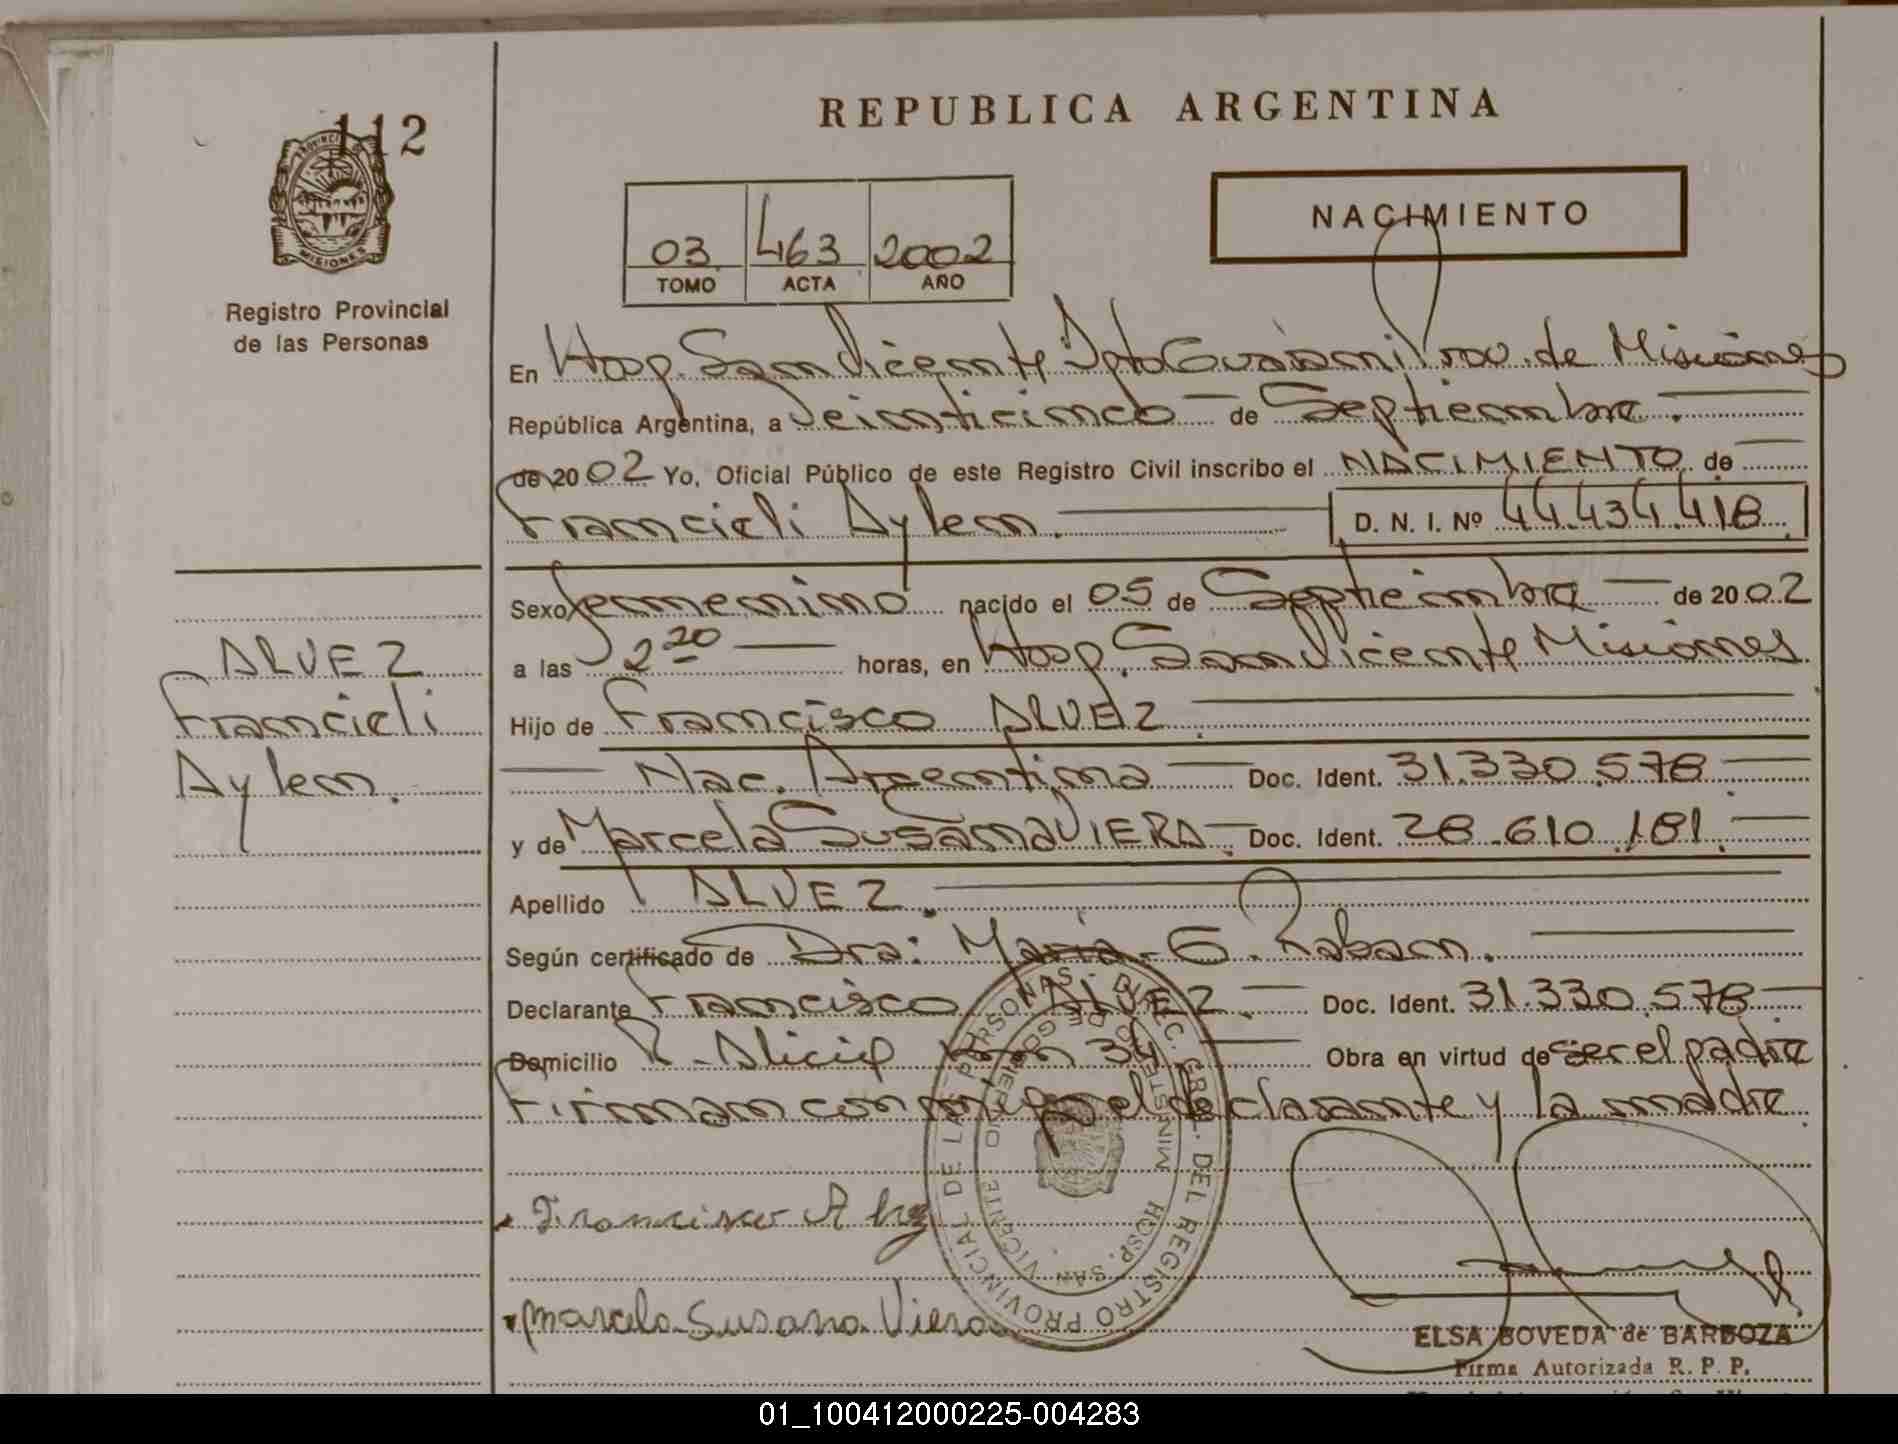 112
REPUBLICA ARGENTINA
PROVINCIA
MISIONES
Registro Provincial
de las Personas
NACIMIENTO
03 463 2002
TOMO ACTA AÑO
En Hosp. San Vicente Dpto Guarani Prov. de Misiones
República Argentina, a Veinticinco de Septiembre.
de 2002 Yo, Oficial Público de este Registro Civil inscribo el NACIMIENTO de
Francieli Aylen. D. N. I. Nº 44.434.418
Sexo femenino nacido el 05 de Septiembre de 2002
a las 2 20 horas, en Hosp. San Vicente Misiones.
ALVEZ
Francieli
Aylen.
Hijo de Francisco ALVEZ.
Nac. Argentina Doc. Ident. 31.330.578
y de Marcela Susana VIERA. Doc. Ident. 28.610.181.
Apellido ALVEZ.
Según certificado de Dra: María E. Raban.
Declarante Francisco ALVEZ. Doc. Ident. 31.330.578
Domicilio P. Alicia km 34 Obra en virtud de ser el padre
Firman conmigo el declarante y la madre.
Francisco Alvez
Marcela Susana Viera
DIREC. GRAL. DEL REGISTRO PROVINCIAL DE LAS PERSONAS
MINISTERIO DE GOBIERNO
HOSP. SAN VICENTE
ELSA BOVEDA de BARBOZA
Firma Autorizada R. P. P.
01_100412000225-004283